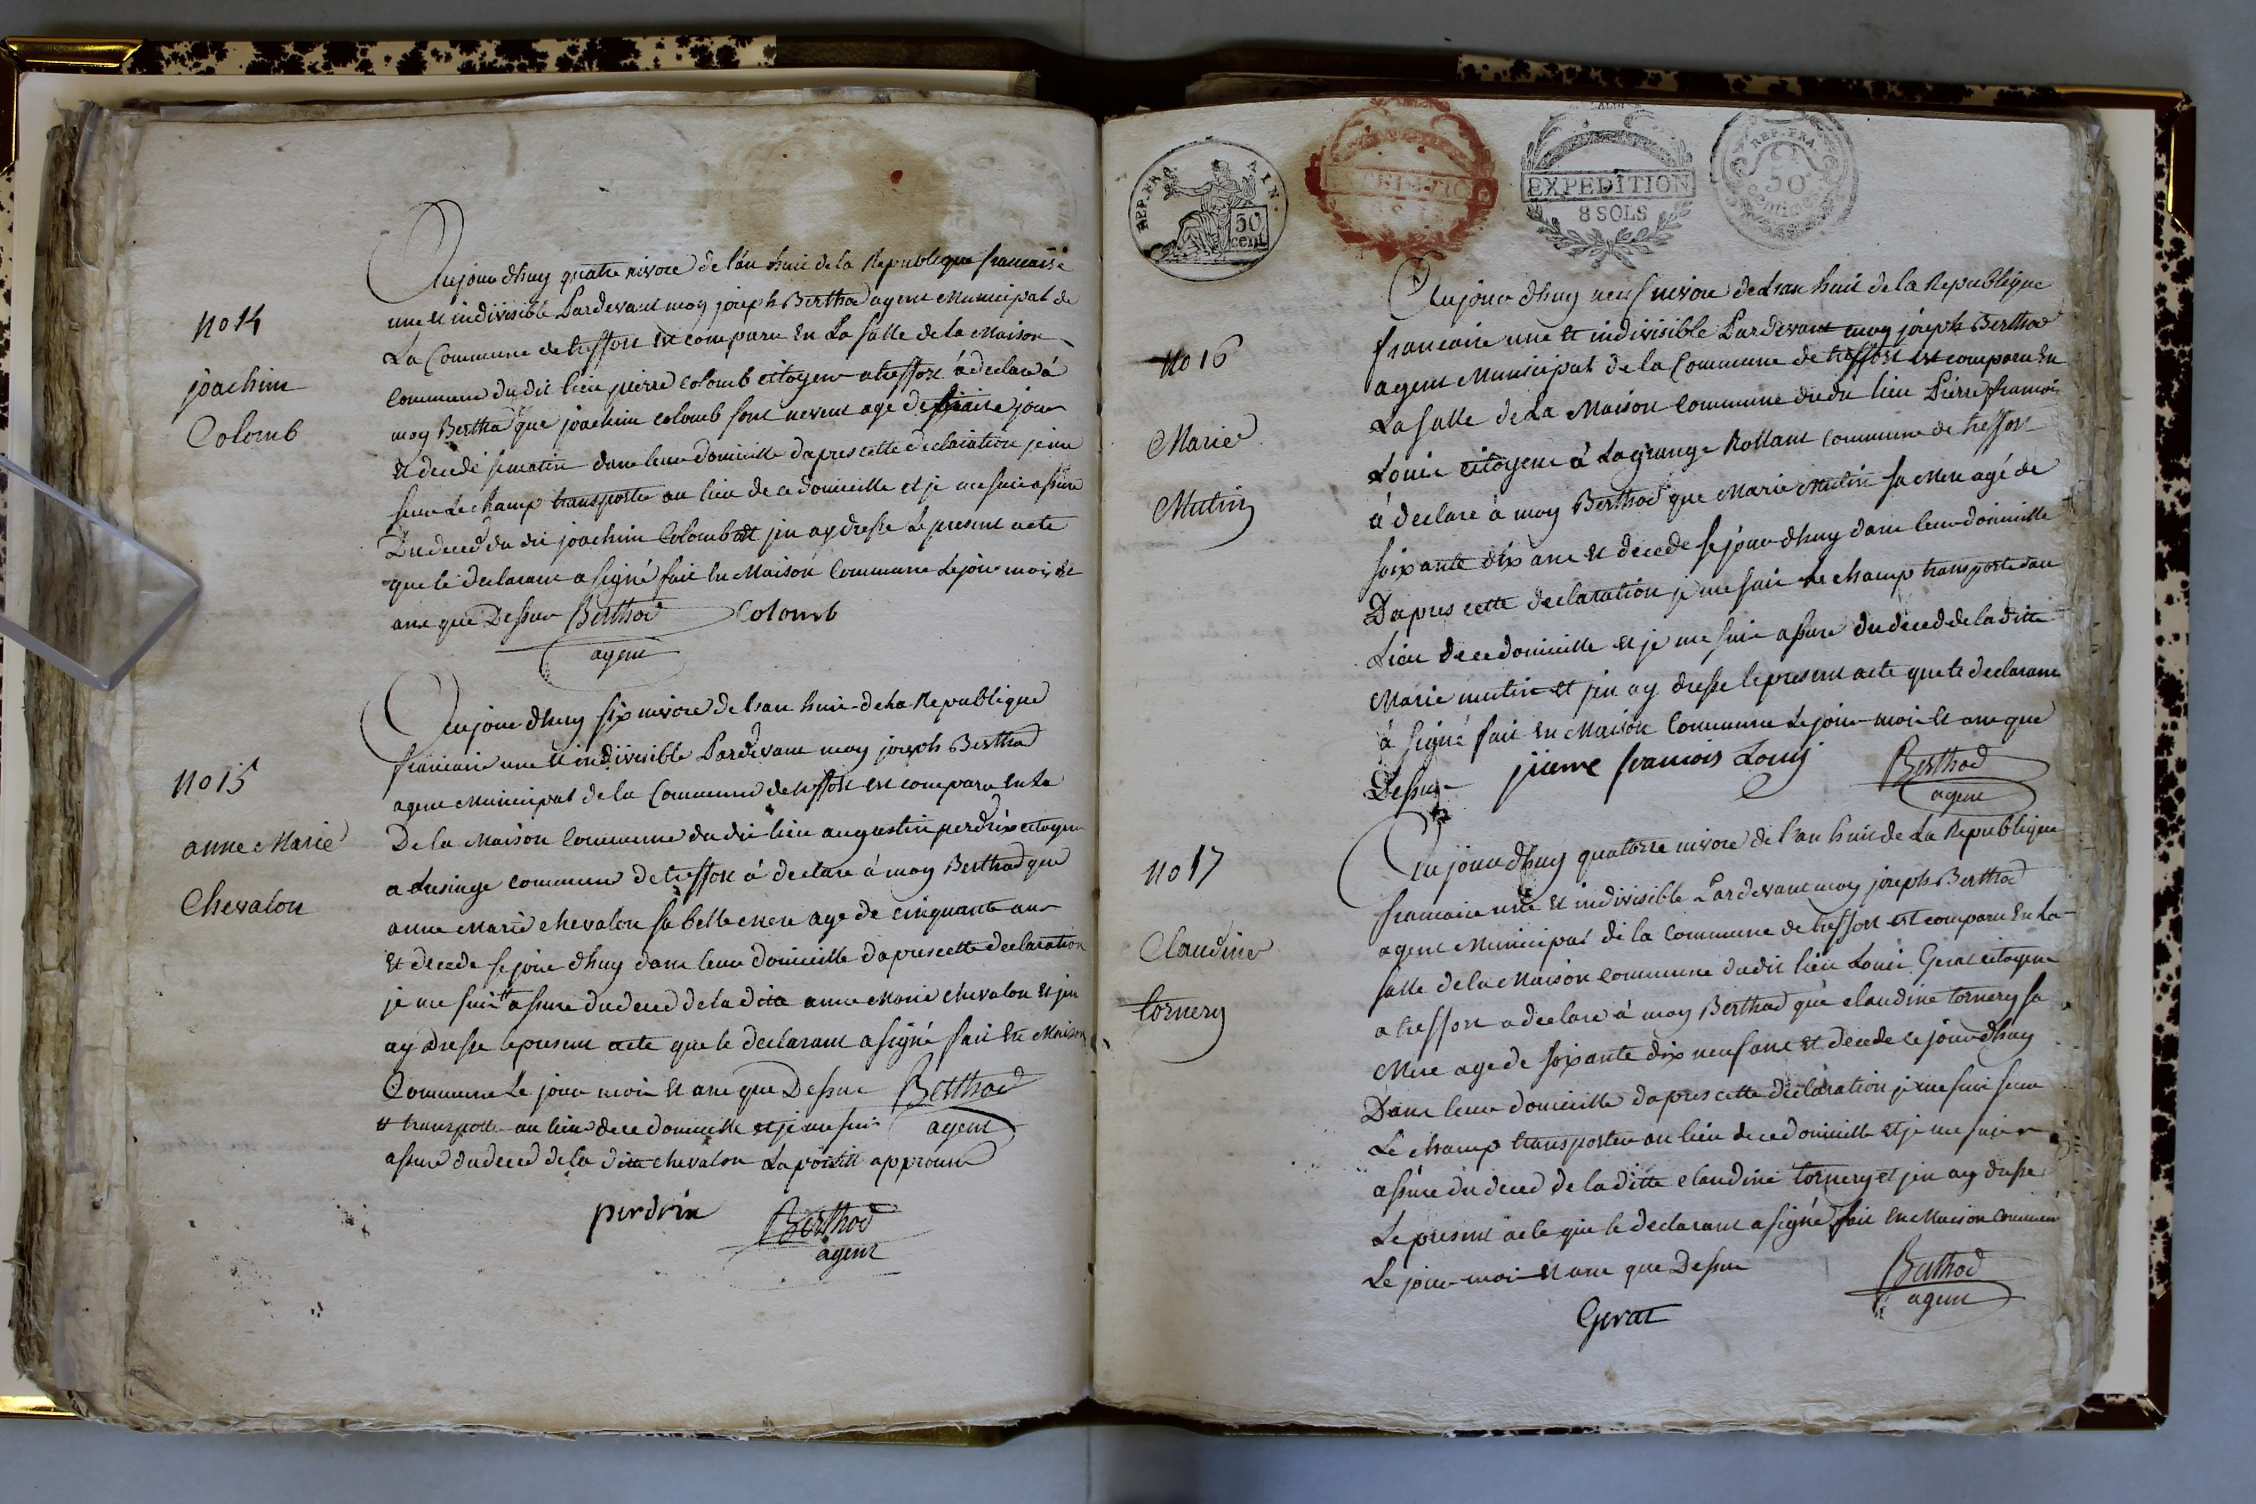 No 14
joachim
Colomb
Aujourdhuy quatre nivose de l'an huit de la Republique francaise
une et indivisible Pardevant moy joseph Berthod agent Municipal de
La Commune de treffort est comparu En La salle de la Maison
Commune du dit lieu pierre colomb citoyen a treffort á declaré á
moy Berthod que joachim colomb sont neveut agé de seaise jour
et decedé se matin dans leur domicille dapres cette declaration je me
suis Le champ transporter au lieu de ce domicille et je me suis assure
Du deced du dit joachim Colomb et jen ay dresse Le present acte
que le declarant a signé fait En Maison Commune Le jour mois et
ans que Dessus Berthod Colomb
agent
No 15
anne Marie
Chevalon
Aujourdhuy six nivose de l'an huit de La Republique
francaise une et indivisible Pardevant moy joseph Berthod
agent Municipal de la Commune de treffort est comparu En La
De la Maison Commune du dit lieu augustin perdrix citoyen
a Lusinge commune de treffort á declaré á moy Berthod que
anne Marie chevalon sa belle mere age de cinquante ans
et decede se jour dhuy dans leur domicille dapres cette declaration
je me suis assure du deced de la dite anne Marie chevalon et jen
ay dresse le present acte que le declarant a signé fait En Maison
Commune Le jour mois et ans que Dessus Berthod
et transporter au lieu de ce domicille et je me suis agent
assure du deced de la dite chevalon La postill approuve
perdrix Berthod
agent
REP. FRA. AIN.
50 cent
EXPEDITION
8 SOLS
REP. FRA.
50
Centimes
No 16
Marie
Mutin
Aujourdhuy neuf nivose de L'an huit de la Republique
francaise une et indivisible Pardevant moy joseph Berthod
agent Municipal de la Commune de treffort est comparu En
La salle de La Maison Commune du du lieu Pierre francois
Louis citoyens á Lagrange Rollant commune de treffort
á declaré á moy Berthod que Marie Mutin sa Mere agé de
soixante dix ans et decede se jour dhuy dans leur domicille
Dapres cette declaration je me suis le champ transporte au
Lieu de ce domicille et je me suis assure du deced de la ditte
Marie mutin et jen ay dresse le present acte que le declarant
á signé fait En Maison Commune Le jour mois et ans que
Dessus pierre francois Louis Berthod
agent
No 17
Claudine
tornery
Aujourdhuy quatorze nivose de l'an huit de La Republique
francaise une et indivisible Pardevant moy joseph Berthod
agent Municipal de la Commune de treffort est comparu En La
salle de la Maison Commune du dit lieu Louis Gerat citoyens
a treffort a declaré á moy Berthod que claudine tornery sa
Mere age de soixante dix neuf ans et decede ce jour dhuy
Dans leur domicille dapres cette declaration je me suis sur
Le champ transporter au lieu de ce domicille et je me suis
assure du deced de la ditte claudine tornery et jen ay dresse
Le present acte que le declarant a signé fait En Maison Commun
Le jour mois et ans que Dessus Berthod
agent
Gerat